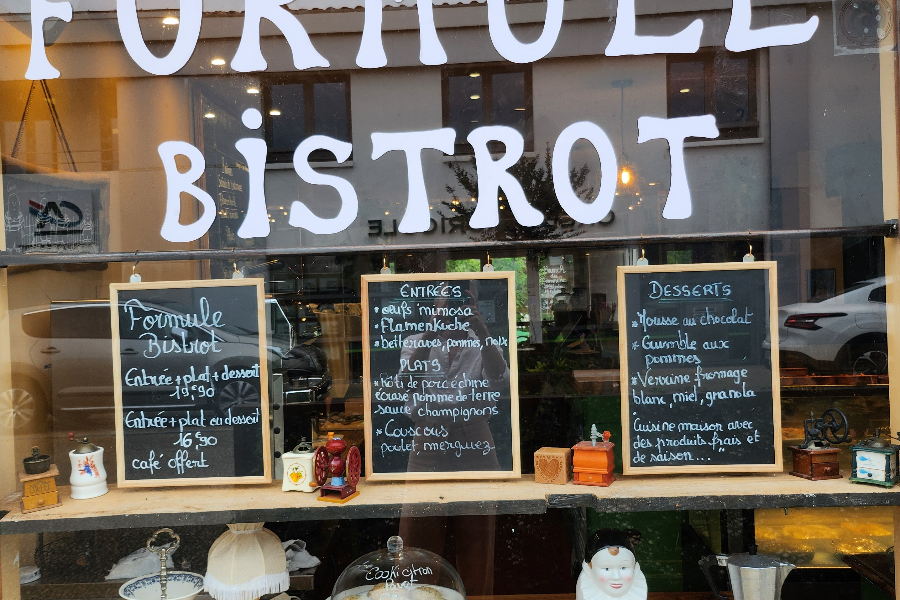 FORMULE
BiSTROT
Formule
Bistrot
Entrée + plat + dessert
19€90
Entrée + plat ou dessert
16€90
café offert
ENTRÉES
• œufs mimosa
• Flamenkuche
• betteraves, pommes, noix
PLATS
* Rôti de porc échine
écrasé pomme de terre
sauce champignons
* Couscous
poulet merguez
DESSERTS
* Mousse au chocolat
* Crumble aux
pommes
* Verrine fromage
blanc, miel, granola
Cuisine maison avec
des produits frais et
de saison...
Cookie citron